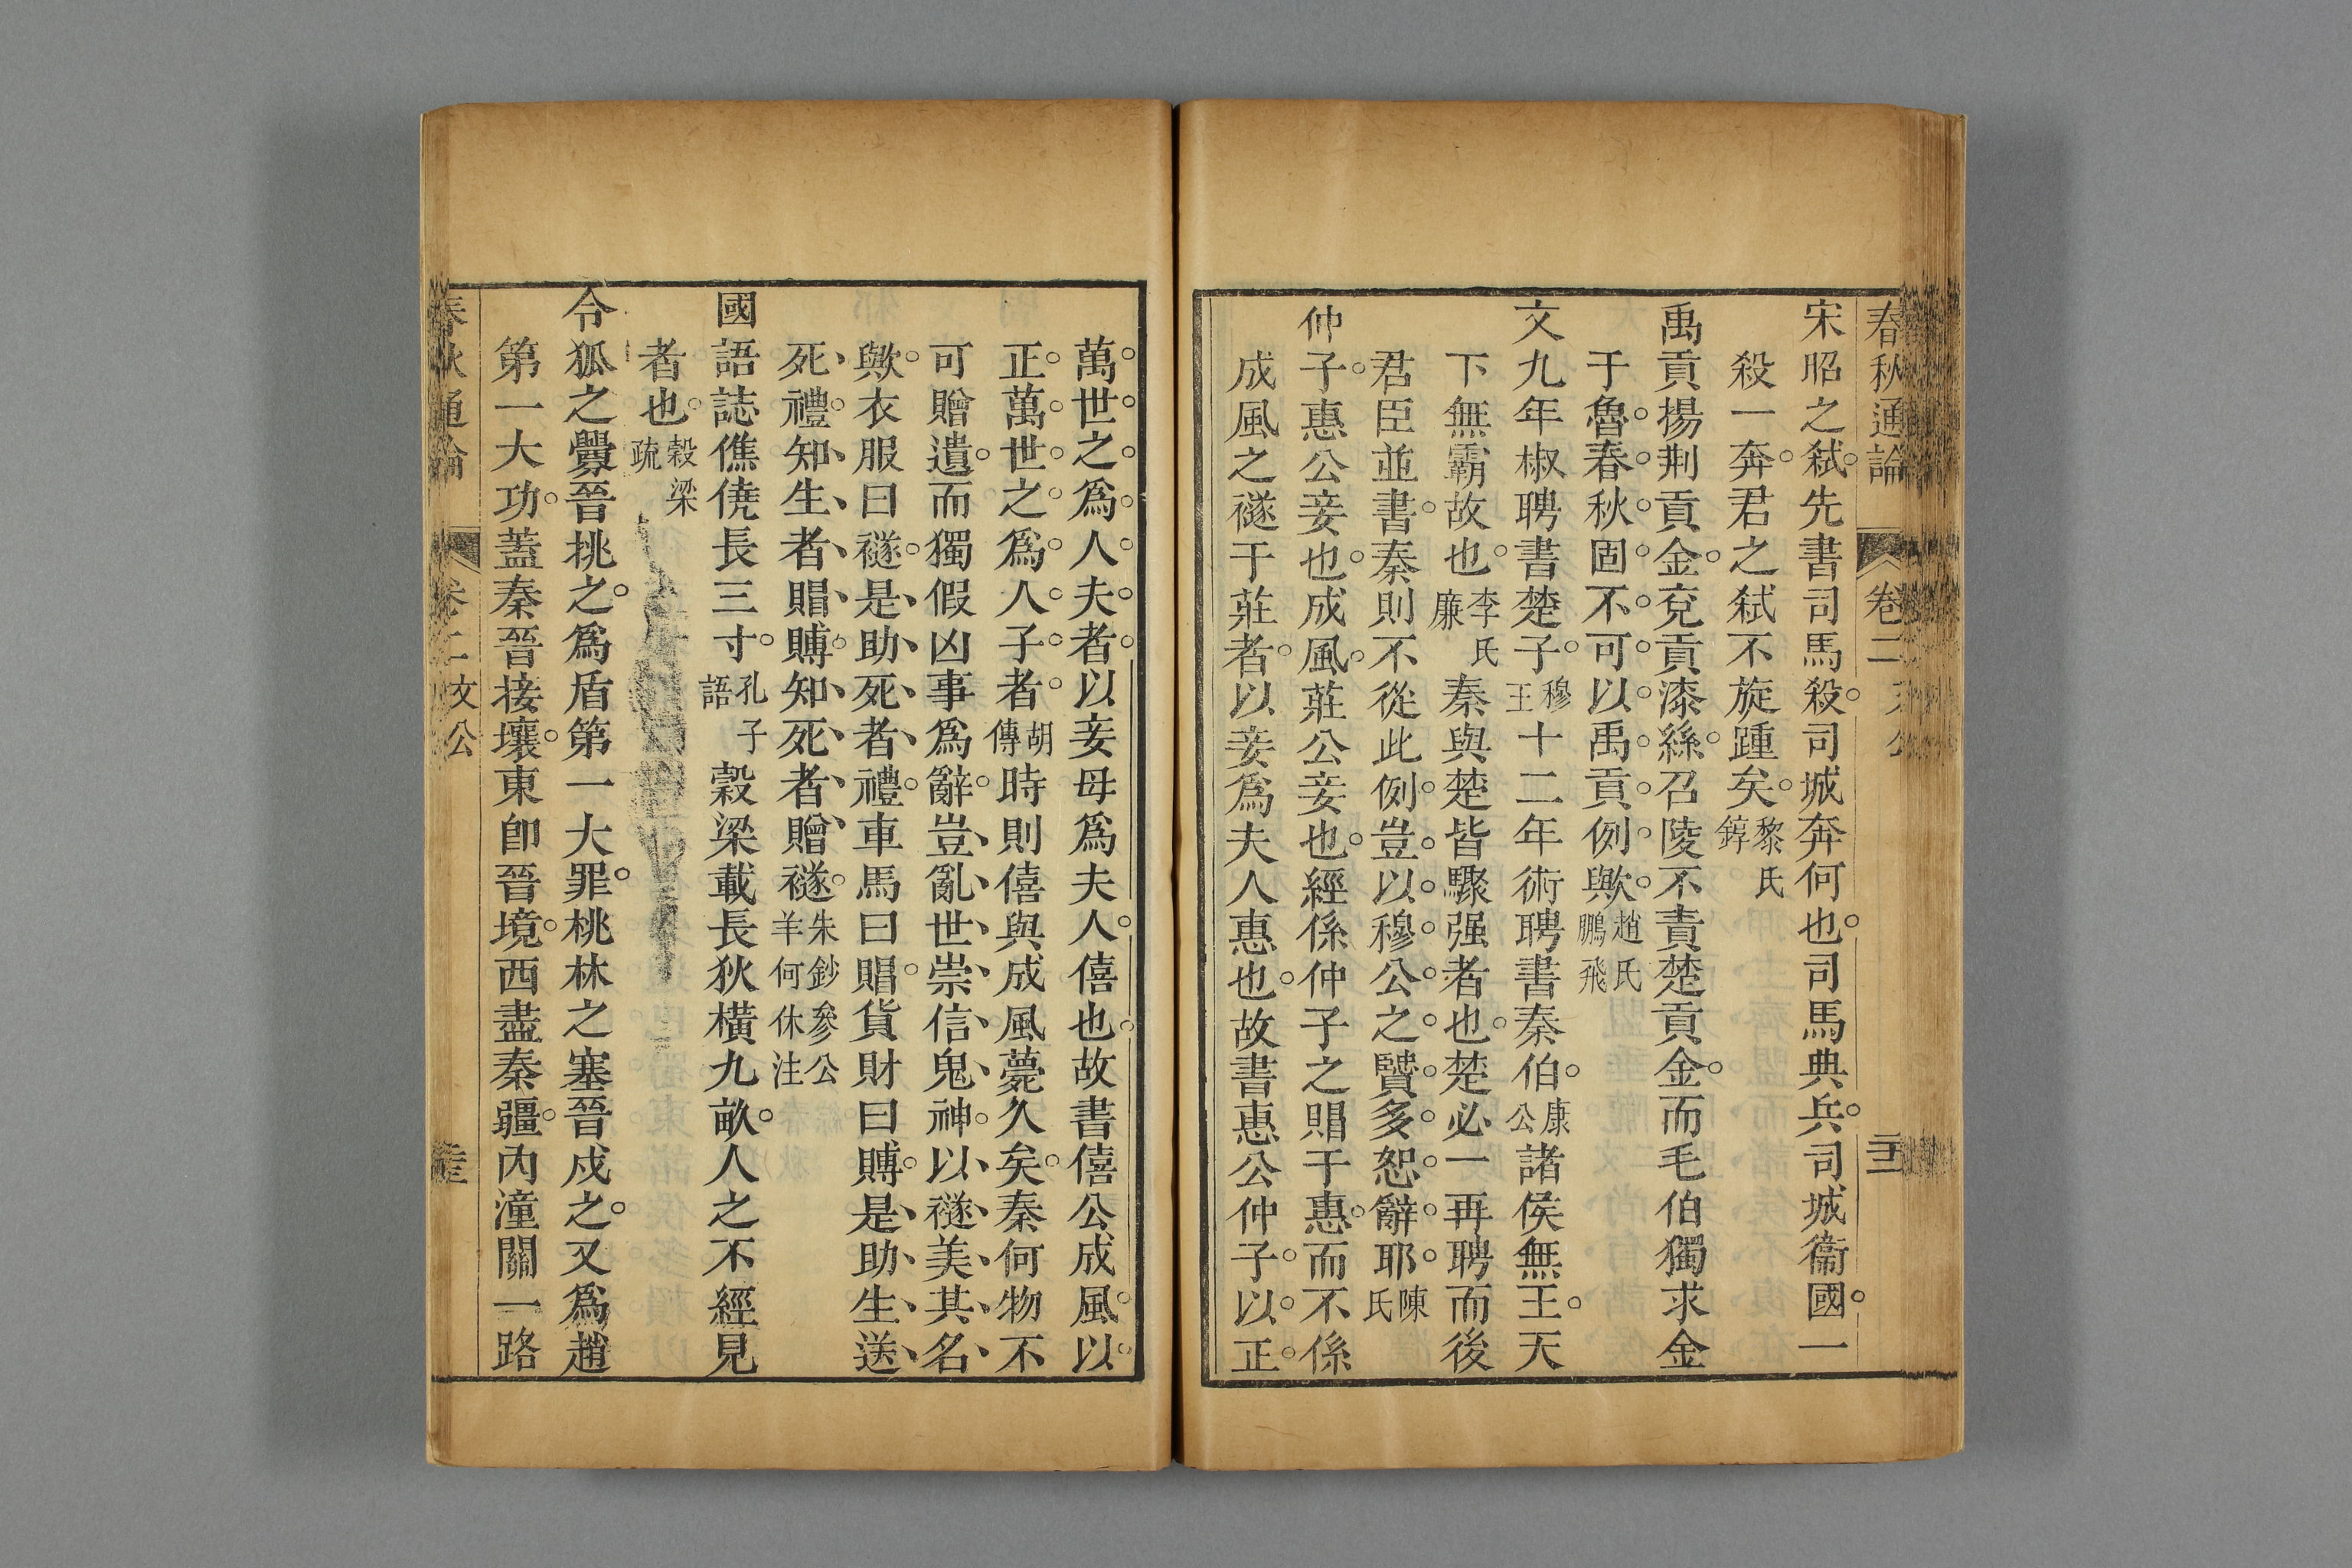 春秋通論 卷二 文公
宋昭之弒先書司馬殺司城奔何也司馬典兵司城衞國一
殺一奔君之弒不旋踵矣黎氏錞
禹貢揚荆貢金兗貢漆絲召陵不責楚貢金而毛伯獨求金
于魯春秋固不可以禹貢例歟趙氏鵬飛
文九年椒聘書楚子穆王十二年術聘書秦伯康公諸侯無王天
下無霸故也李氏廉秦與楚皆驟强者也楚必一再聘而後
君臣並書秦則不從此例豈以穆公之賢多恕辭耶陳氏
仲子惠公妾也成風莊公妾也經係仲子之賵于惠而不係
成風之襚于莊者以妾爲夫人惠也故書惠公仲子以正
萬世之爲人夫者以妾母爲夫人僖也故書僖公成風以
正萬世之爲人子者胡傳時則僖與成風薨久矣秦何物不
可贈遺而獨假凶事爲辭豈亂世崇信鬼神以襚美其名
歟衣服曰襚是助死者禮車馬曰賵貨財曰賻是助生送
死禮知生者賵賻知死者贈襚朱鈔參公羊何休注
國語誌僬僥長三寸孔子語穀梁載長狄橫九畝人之不經見
者也穀梁疏
令狐之釁晉挑之爲盾第一大罪桃林之塞晉戍之又爲趙
第一大功蓋秦晉接壤東卽晉境西盡秦疆內潼關一路
春秋通論 卷二 文公